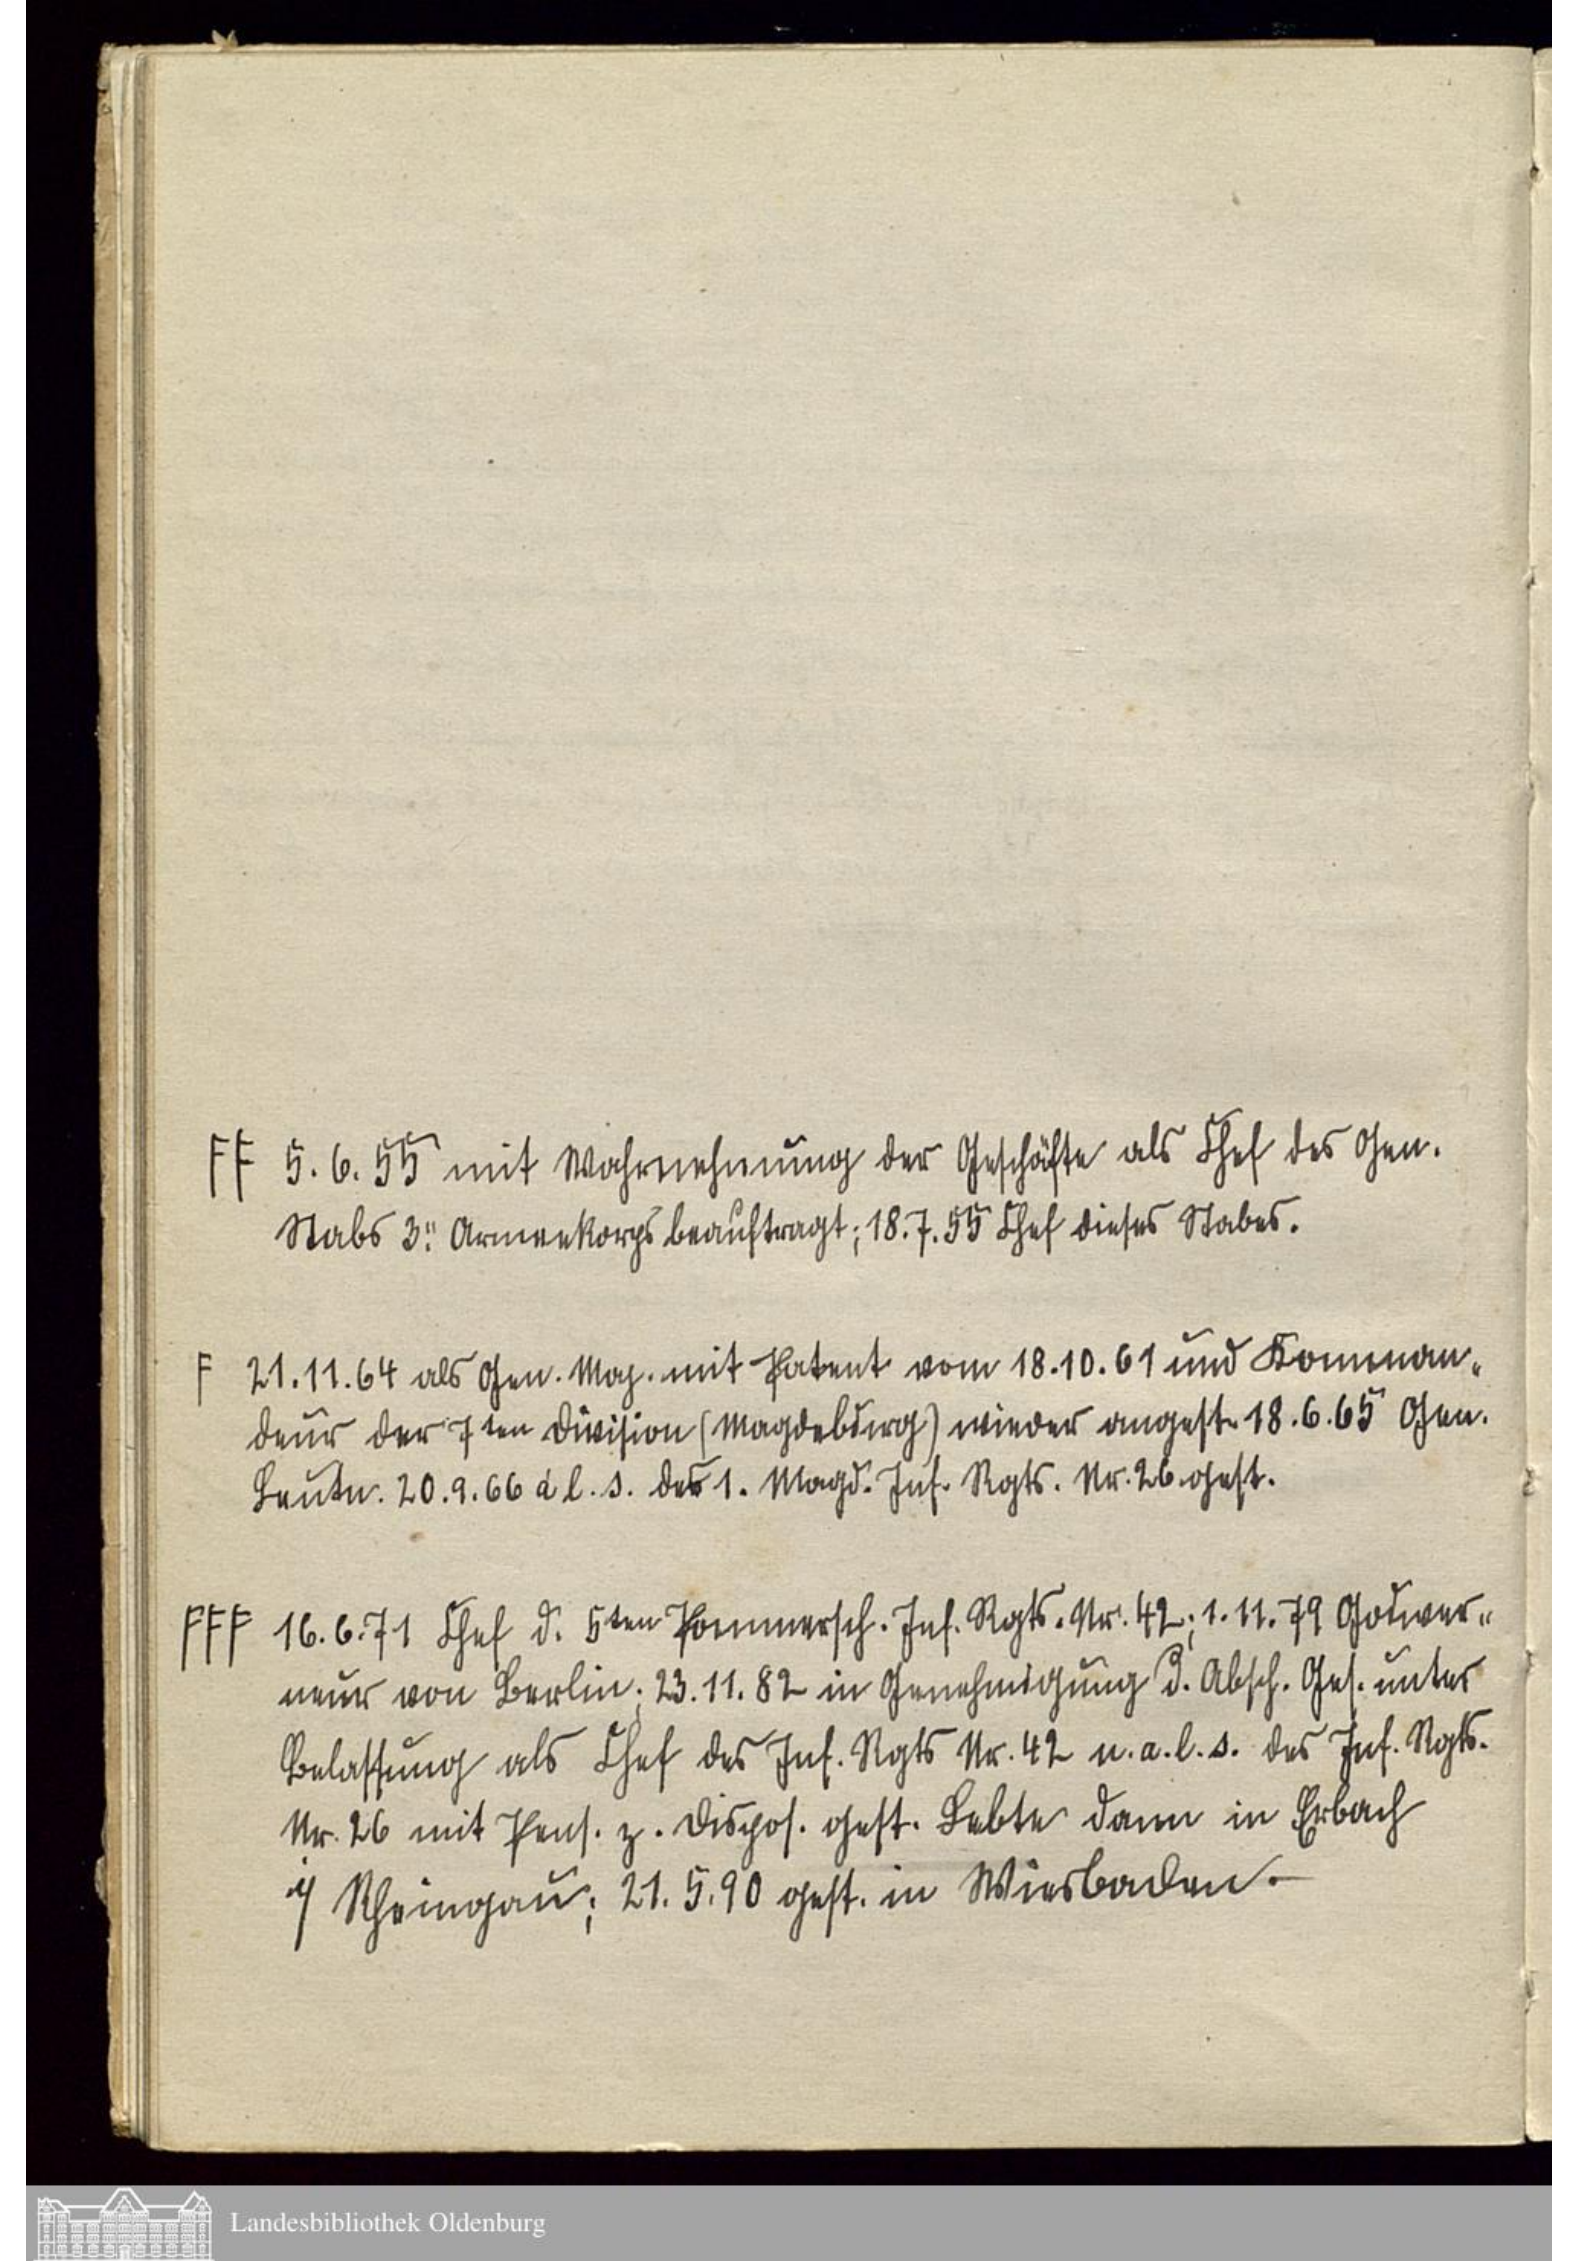 FF 5.6.55 mit Wahrnehmung der Geschäfte als Chef des Gen.
Stabs 3" Armeekorps beauftragt; 18.7.55 Chef dieses Stabes.
F 21.11.64 als Gen. Maj. mit Patent vom 18.10.61 und Komman-
deur der 7ten Division (Magdeburg) wieder angest. 18.6.65 Gen.
Leutn. 20.9.66 à l. s. des 1. Magd. Inf. Rgts. Nr. 26 gest.
FFF 16.6.71 Chef d. 5ten Pommersch. Inf. Rgts. Nr. 42; 1.11.79 Gouver-
neur von Berlin; 23.11.82 in Genehmigung d. Absch. Ges. unter
Belassung als Chef des Inf. Rgts Nr. 42 u. a. l. s. des Inf. Rgts.
Nr. 26 mit Pens. z. Dispos. gest. Lebte dann in Erbach
i/ Rheingau; 21.5.90 gest. in Wiesbaden.–
Landesbibliothek Oldenburg